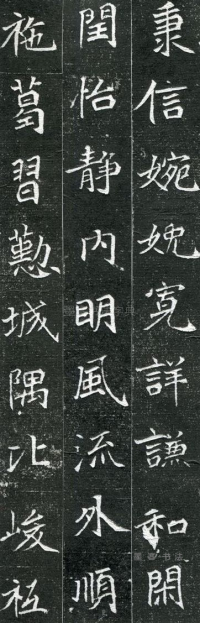 秉信婉娩寬詳謙和閑
閏怡靜內明風流外順
袘葛習懃城隅比峻袛